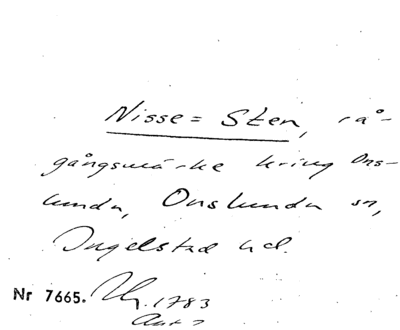 Nisse= Sten, rå-
gångsmärke kring Ons-
lunda, Onslunda sn,
Ingelstad hd.
Nr 7665. 1783